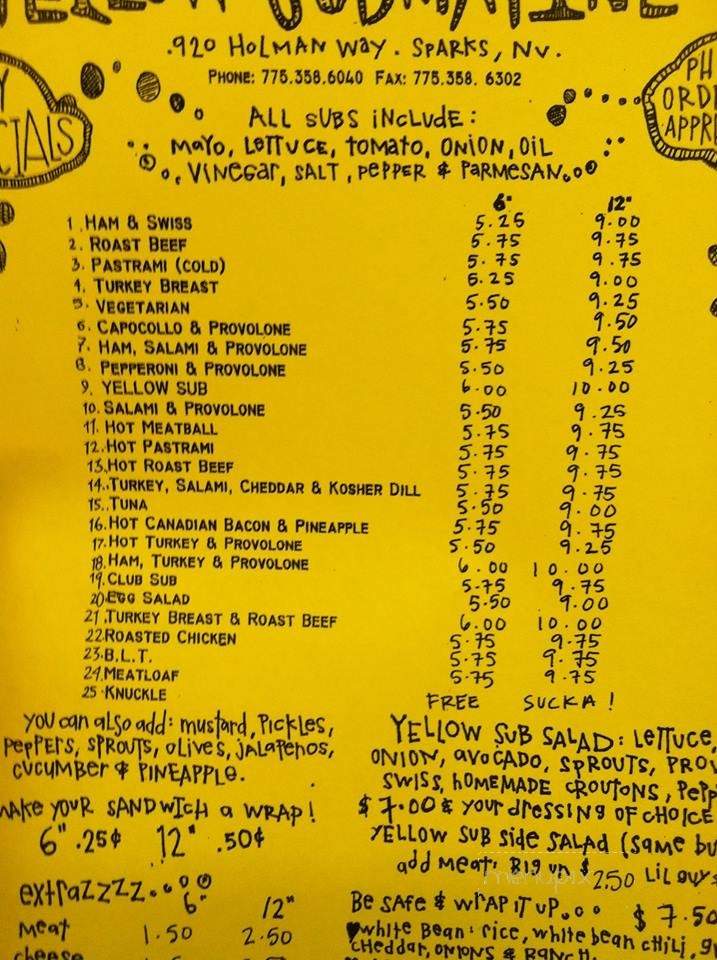 YELLOW SUBMARINE
.920 HOLMAN WAY. SPARKS, NV.
PHONE: 775.358.6040 FAX: 775.358. 6302
ALL SUBS INCLUDE:
MAYO, LETTUCE, TOMATO, ONION, OIL
VINEGAR, SALT, PEPPER & PARMESAN
6" 12"
1. HAM & SWISS 5.25 9.00
2. ROAST BEEF 5.75 9.75
3. PASTRAMI (COLD) 5.75 9.75
4. TURKEY BREAST 5.25 9.00
5. VEGETARIAN 5.50 9.25
6. CAPOCOLLO & PROVOLONE 5.75 9.50
7. HAM, SALAMI & PROVOLONE 5.75 9.50
8. PEPPERONI & PROVOLONE 5.50 9.25
9. YELLOW SUB 6.00 10.00
10. SALAMI & PROVOLONE 5.50 9.25
11. HOT MEATBALL 5.75 9.75
12. HOT PASTRAMI 5.75 9.75
13. HOT ROAST BEEF 5.75 9.75
14. TURKEY, SALAMI, CHEDDAR & KOSHER DILL 5.75 9.75
15. TUNA 5.50 9.00
16. HOT CANADIAN BACON & PINEAPPLE 5.75 9.75
17. HOT TURKEY & PROVOLONE 5.50 9.25
18. HAM, TURKEY & PROVOLONE 6.00 10.00
19. CLUB SUB 5.75 9.75
20. EGG SALAD 5.50 9.00
21. TURKEY BREAST & ROAST BEEF 6.00 10.00
22. ROASTED CHICKEN 5.75 9.75
23. B.L.T. 5.75 9.75
24. MEATLOAF 5.75 9.75
25. KNUCKLE FREE SUCKA!
YOU can also add: mustard, PICKLES,
PEPPERS, SPROUTS, OLIVES, JALAPENOS,
CUCUMBER & PINEAPPLE.
MAKE YOUR SANDWICH a WRAP!
6" .25¢ 12" .50¢
extrazzzz...
6" 12"
meat 1.50 2.50
cheese
YELLOW SUB SALAD: LETTUCE,
ONION, AVOCADO, SPROUTS, PROV
SWISS, HOMEMADE CROUTONS, PEPP
$7.00 & your dressing OF CHOICE
YELLOW SUB side SALAD (same bu
add meat: BIG un $2.50 LIL guys
Be SAFE & WRAP IT UP... $7.50
white Bean: rice, white bean chili, g
CHEDDAR, ONIONS & RANCH.